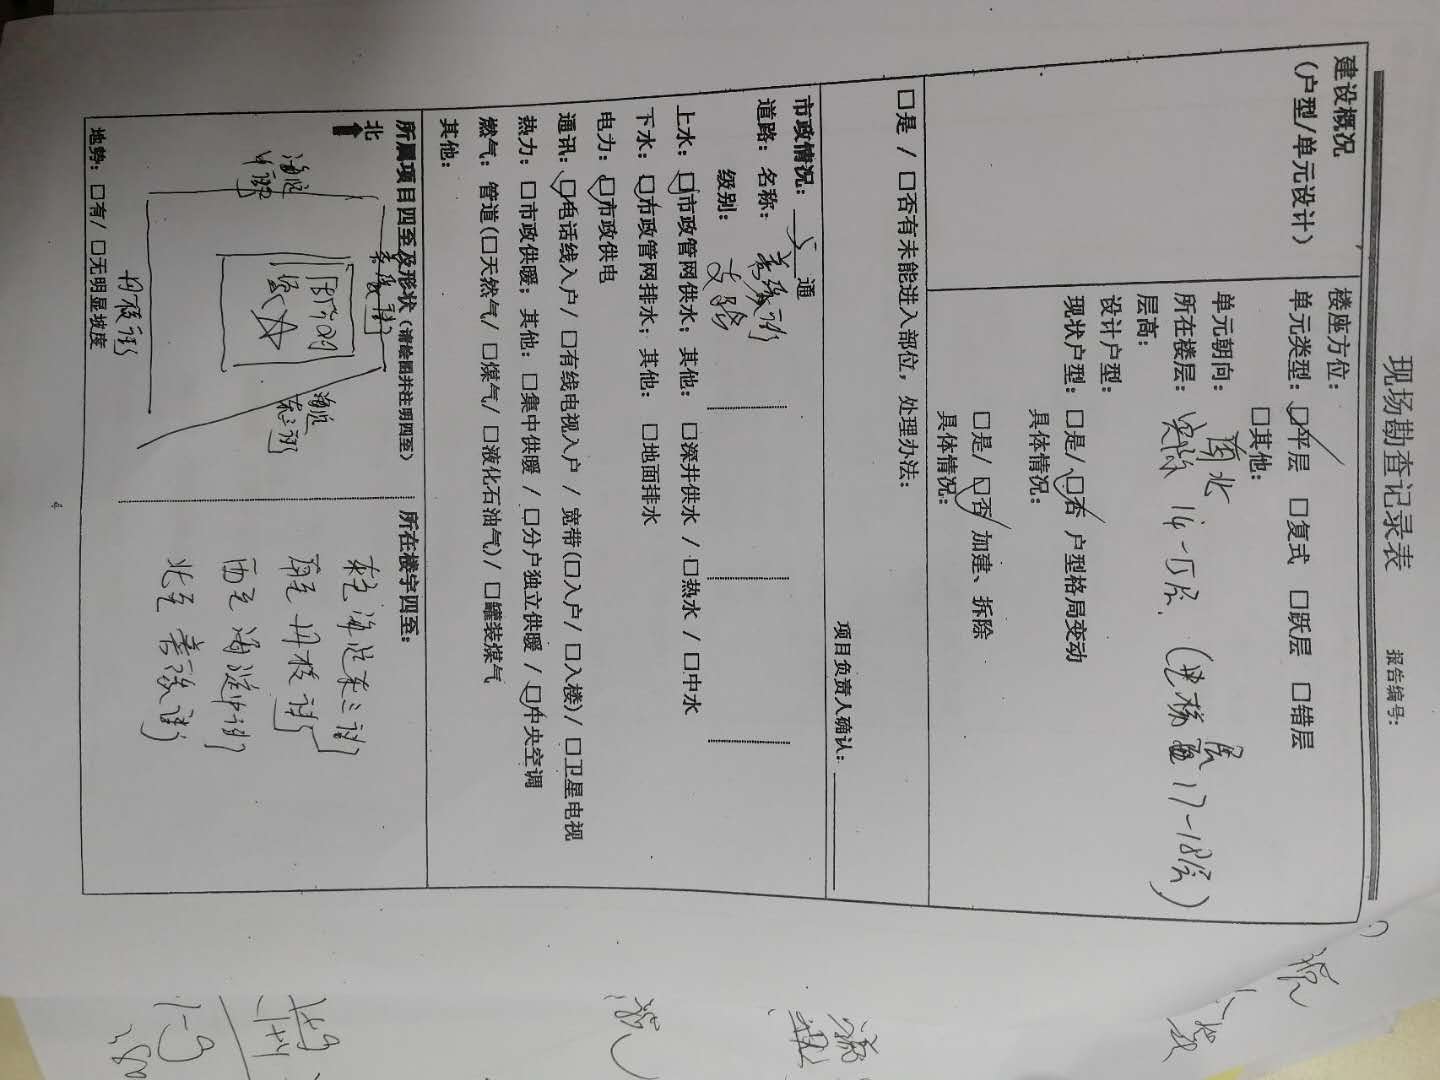 现场勘查记录表
报告编号：
建设概况
（户型/单元设计）
楼座方位：
单元类型：☑平层 □复式 □跃层 □错层
□其他：
单元朝向：南北
所在楼层：实际14-15层（电梯显17-18层）
层高：
设计户型：
现状户型：□是/☑否 户型格局变动
具体情况：
□是/☑否 加建、拆除
具体情况：
□是 / □否有未能进入部位，处理办法：
项目负责人确认：
市政情况： 五 通
道路：名称： 善缘街
级别： 支路
上水：☑市政管网供水；其他：□深井供水 / □热水 / □中水
下水：☑市政管网排水；其他：□地面排水
电力：☑市政供电
通讯：☑电话线入户/ □有线电视入户 / 宽带(□入户/ □入楼)/ □卫星电视
热力：□市政供暖；其他：□集中供暖 / □分户独立供暖 / ☑中央空调
燃气：管道(□天然气/ □煤气/ □液化石油气)/ □罐装煤气
其他：
所属项目四至及形状（请绘图并注明四至）
北
善缘街
海淀
中街
海淀
东三街
丹棱街
地势：□有/ □无明显坡度
所在楼宇四至：
东至海淀东三街
南至丹棱街
西至海淀中街
北至善缘街
4